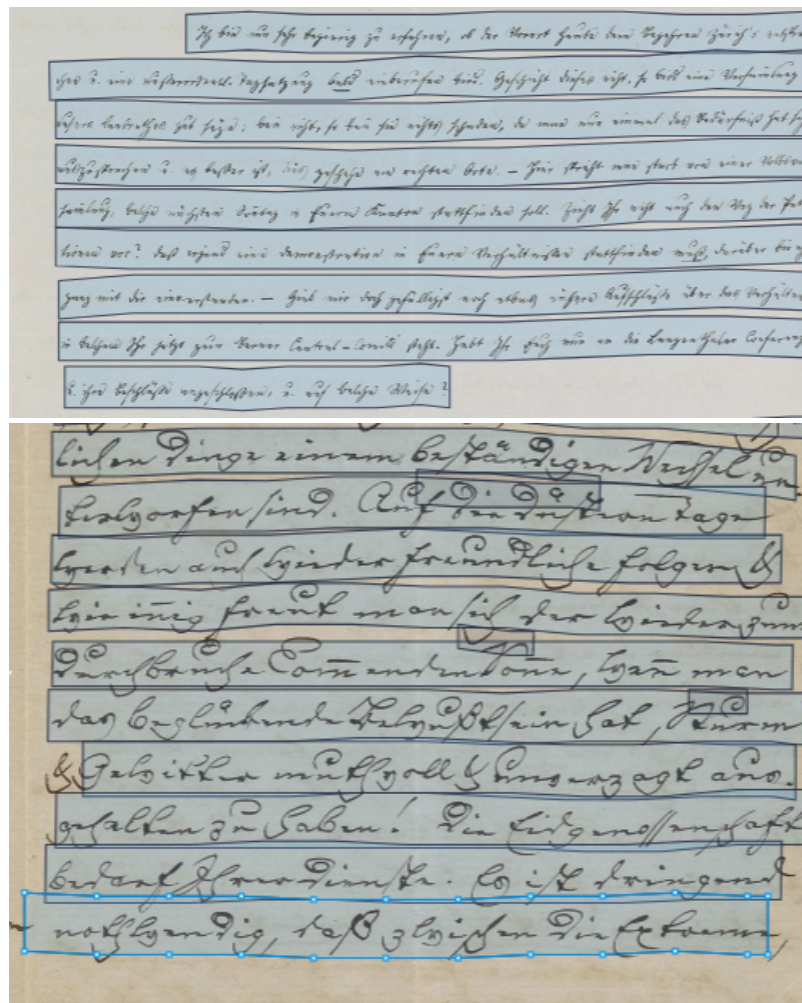 Ich bin nun sehr begierig zu erfahren, ob der Vorort heute dem Begehren Zürich's entspro
chen u. eine außerordentl. Tagsatzung bald einberufen wird. Geschieht dieses nicht, so wird eine Versammlung
unseres Landrathes
auszusprechen u. es besser ist, dies geschehe am rechten Orte. – Hier spricht man stark von einer Volksver
sammlung, welche nächsten Sonntag in Euerm Kanton stattfinden soll. Zieht Ihr nicht auch den Weg der Peti
tionen vor? daß irgend eine Demonstration in Euern Verhältnissen stattfinden muß, darüber bin ich
ganz mit dir einverstanden. – Gieb mir doch gefälligst noch etwas nähere Aufschlüsse über das Verhältniß
in welchem Ihr jetzt zum Berner Central-Comité steht. Habt Ihr Euch nun an die Langenthaler Conferenz
u. ihre Beschlüsse angeschlossen, u. auf welche Weise?
lichen Dinge einem beständigen Wechsel un
terworfen sind. Auf die düstern Tage
werden auch wieder freundliche folgen &
wie innig freut man sich der wieder zum
Durchbruche kommenden Sonne, wenn man
das beglückende Bewußtsein hat, Sturm
& Gewitter muthvoll & unverzagt aus-
gehalten zu haben! Die Eidgenossenschaft
bedarf Ihrer Dienste. Es ist dringend
nothwendig, daß zwischen die Extreme,